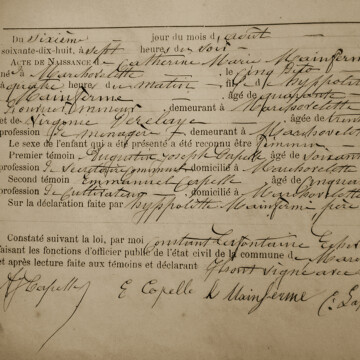 Du sixième jour du mois de août
soixante-dix-huit, à sept heures du soir
ACTE DE NAISSANCE de Catherine Marie Mainferme
né à Marchovelette le cinq
à quatre heures du matin fil de Hyppolite
Mainferme âgé de quarante
profession d demeurant à Marchovelette
et de Virginie âgée de
profession de ménagère demeurant à Marchovelette
Le sexe de l'enfant qui a été présenté a été reconnu être féminin
Premier témoin Augustin Joseph Capelle âgé de soixante
profession de secrétaire communal domicilié à Marchovelette
Second témoin Emmanuel Capelle âgé de
profession de cultivateur domicilié à Marchovelette
Sur la déclaration faite par Hyppolitte Mainferme père
Constaté suivant la loi, par moi Constant Lafontaine
faisant les fonctions d'officier public de l'état civil de la commune de
et après lecture faite aux témoins et déclarant
Capelle E Capelle h Mainferme